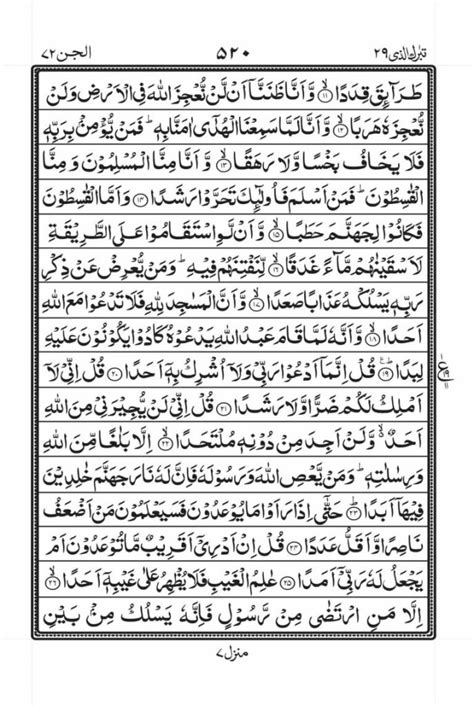 تبٰرك الذی ۲۹ ۵۲۰ الجن ۷۲
طَرَآئِقَ قِدَدًا ۙ﴿۱۱﴾ وَّاَنَّا ظَنَنَّاۤ اَنْ لَّنْ نُّعْجِزَ اللّٰهَ فِی الْاَرْضِ وَلَنْ
نُّعْجِزَهٗ هَرَبًا ۙ﴿۱۲﴾ وَّاَنَّا لَمَّا سَمِعْنَا الْهُدٰۤی اٰمَنَّا بِهٖ ؕ فَمَنْ یُّؤْمِنْۢ بِرَبِّهٖ
فَلَا یَخَافُ بَخْسًا وَّلَا رَهَقًا ۙ﴿۱۳﴾ وَّاَنَّا مِنَّا الْمُسْلِمُوْنَ وَمِنَّا
الْقٰسِطُوْنَ ؕ فَمَنْ اَسْلَمَ فَاُولٰٓئِكَ تَحَرَّوْا رَشَدًا ﴿۱۴﴾ وَاَمَّا الْقٰسِطُوْنَ
فَكَانُوْا لِجَهَنَّمَ حَطَبًا ۙ﴿۱۵﴾ وَّاَنْ لَّوِ اسْتَقَامُوْا عَلَی الطَّرِیْقَةِ
لَاَسْقَیْنٰهُمْ مَّآءً غَدَقًا ۙ﴿۱۶﴾ لِّنَفْتِنَهُمْ فِیْهِ ؕ وَمَنْ یُّعْرِضْ عَنْ ذِكْرِ
رَبِّهٖ یَسْلُكْهُ عَذَابًا صَعَدًا ۙ﴿۱۷﴾ وَّاَنَّ الْمَسٰجِدَ لِلّٰهِ فَلَا تَدْعُوْا مَعَ اللّٰهِ
اَحَدًا ۙ﴿۱۸﴾ وَّاَنَّهٗ لَمَّا قَامَ عَبْدُ اللّٰهِ یَدْعُوْهُ كَادُوْا یَكُوْنُوْنَ عَلَیْهِ
لِبَدًا ؕ﴿۱۹﴾ قُلْ اِنَّمَاۤ اَدْعُوْا رَبِّیْ وَلَاۤ اُشْرِكُ بِهٖۤ اَحَدًا ﴿۲۰﴾ قُلْ اِنِّیْ لَاۤ
اَمْلِكُ لَكُمْ ضَرًّا وَّلَا رَشَدًا ﴿۲۱﴾ قُلْ اِنِّیْ لَنْ یُّجِیْرَنِیْ مِنَ اللّٰهِ
اَحَدٌ ۙ۬ وَّلَنْ اَجِدَ مِنْ دُوْنِهٖ مُلْتَحَدًا ۙ﴿۲۲﴾ اِلَّا بَلٰغًا مِّنَ اللّٰهِ
وَرِسٰلٰتِهٖ ؕ وَمَنْ یَّعْصِ اللّٰهَ وَرَسُوْلَهٗ فَاِنَّ لَهٗ نَارَ جَهَنَّمَ خٰلِدِیْنَ
فِیْهَاۤ اَبَدًا ؕ﴿۲۳﴾ حَتّٰۤی اِذَا رَاَوْا مَا یُوْعَدُوْنَ فَسَیَعْلَمُوْنَ مَنْ اَضْعَفُ
نَاصِرًا وَّاَقَلُّ عَدَدًا ﴿۲۴﴾ قُلْ اِنْ اَدْرِیْۤ اَقَرِیْبٌ مَّا تُوْعَدُوْنَ اَمْ
یَجْعَلُ لَهٗ رَبِّیْۤ اَمَدًا ﴿۲۵﴾ عٰلِمُ الْغَیْبِ فَلَا یُظْهِرُ عَلٰی غَیْبِهٖۤ اَحَدًا ۙ﴿۲۶﴾
اِلَّا مَنِ ارْتَضٰی مِنْ رَّسُوْلٍ فَاِنَّهٗ یَسْلُكُ مِنْۢ بَیْنِ
منزل ۷